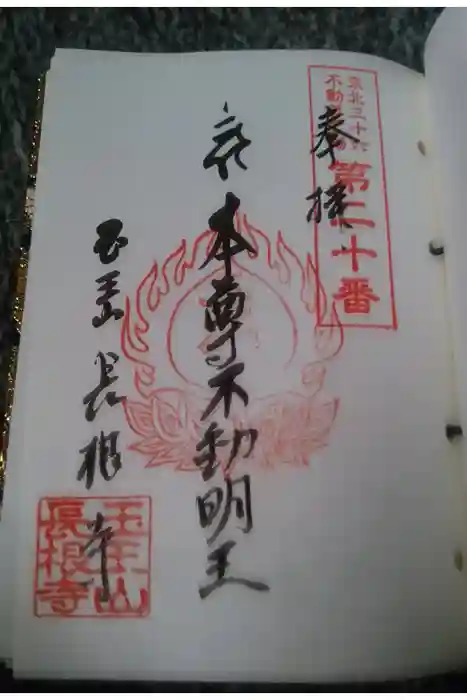 東北三十六
不動尊霊場
第二十番
奉拝
本尊不動明王
玉王山
長根寺
長根寺